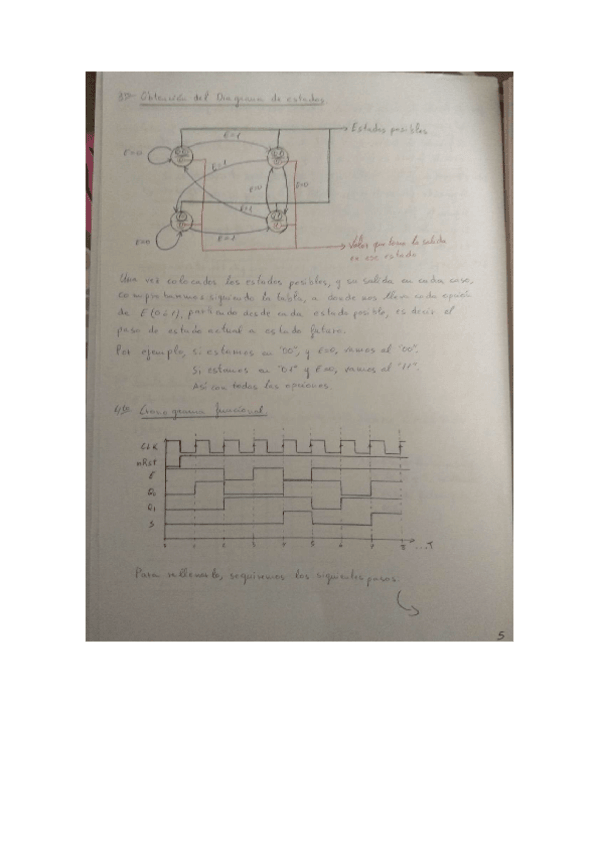 3º Obtención del Diagrama de estados.
Estados posibles
E=0
E=1
E=1
E=0
E=0
E=1
E=0
E=1
Valor que tiene la salida
en ese estado
Una vez colocados los estados posibles, y su salida en cada caso,
comprobamos siguiendo la tabla, a donde nos lleva cada
E (0 ó 1), partiendo desde cada estado posible, es decir el
paso de estado actual a estado futuro.
Por ejemplo, si estamos en "00", y E=0, vamos al "00".
Si estamos en "01" y E=0, vamos al "11".
Así con todas las opciones.
4º Cronograma funcional
CLK
nRst
E
Q0
Q1
S
0 1 2 3 4 5 6 7 8 ...T
Para rellenarlo, seguiremos los siguientes pasos
5